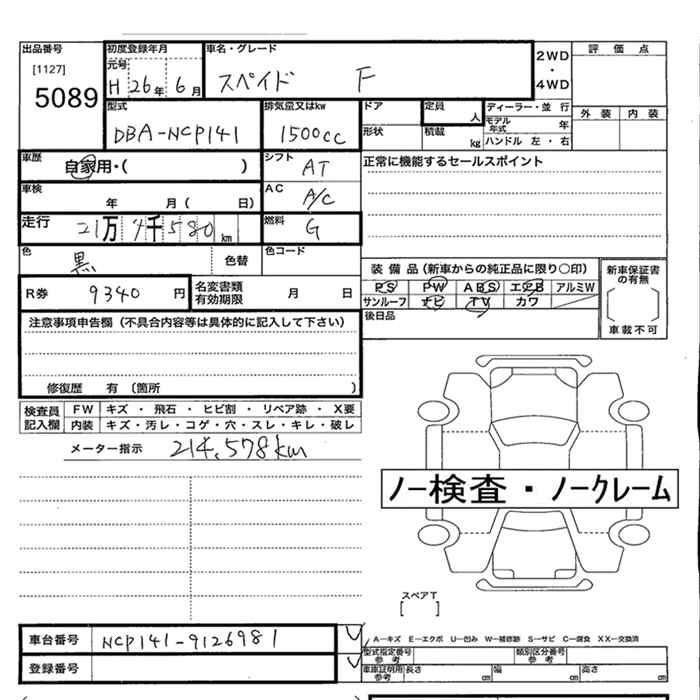 出品番号 初度登録年月 車名・グレード 評価点
[1127] 元号 2WD
5089 H 26年 6月 スペイド F ・
4WD 外装 内装
型式 排気量又はkw ドア 定員 人 ディーラー・並 行
DBA-NCP141 1500cc 形状 積載 kg モデル年式 年
ハンドル 左・右
車歴 自家用・( ) シフト AT 正常に機能するセールスポイント
車検 年 月( 日) AC A/C
走行 21万4千580km 燃料 G
色 黒 色替 色コード
装備品(新車からの純正品に限り○印) 新車保証書の有無
R券 9340円 名変書類有効期限 月 日 PS PW ABS エアB アルミW
サンルーフ ナビ TV カワ
後日品 車載不可
注意事項申告欄(不具合内容等は具体的に記入して下さい)
修復歴 有 (箇所 )
検査員記入欄 FW キズ ・ 飛石 ・ ヒビ割 ・ リペア跡 ・ X要
内装 キズ・汚レ・コゲ・穴・スレ・キレ・破レ
メーター指示 214,578km
ノー検査・ノークレーム
スペアT
[ ]
車台番号 NCP141-9126981
A―キズ E―エクボ U―凹み W―補修跡 S―サビ C―腐食 XX―交換済
登録番号 型式指定番号参考 類別区分番号参考
車庫証明用参考 長さ cm 幅 cm 高さ cm